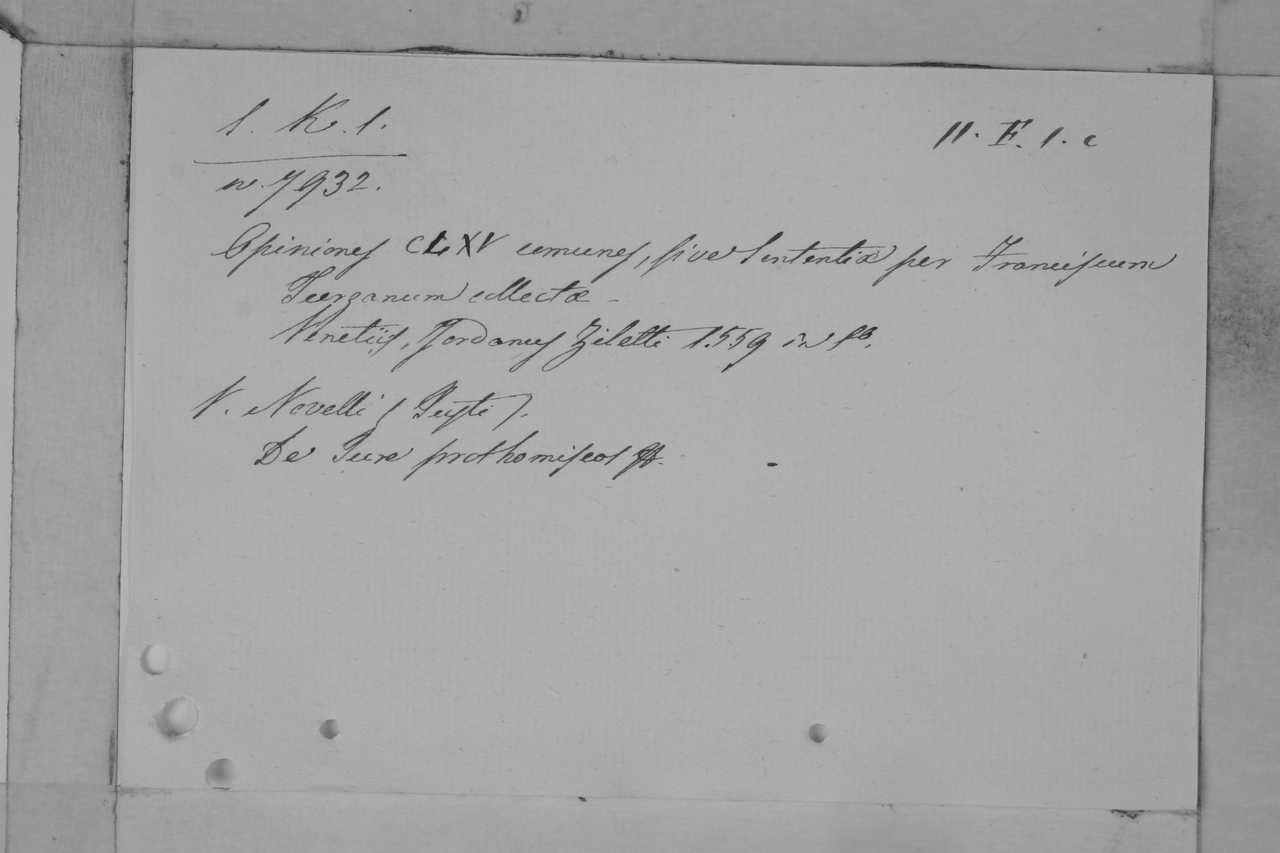 I. K. I.
11. F. 1. c
n. 7932.
Opiniones CLXV comunes, sive Sententiæ per Franciscum
Turzanum collectæ -
Venetiis, Jordanus Ziletti 1559 in fo.
V. Novelli (Justi).
De Jure prothomiseos